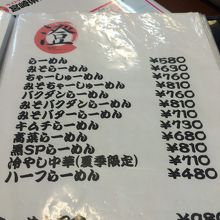 澄
らーめん ¥580
みそらーめん ¥630
ちゃーしゅーめん ¥760
みそちゃーしゅーめん ¥810
バクダンらーめん ¥760
みそバクダンらーめん ¥810
みそバターらーめん ¥710
キムチらーめん ¥730
高菜らーめん ¥680
黒SPらーめん ¥810
冷やし中華(夏季限定) ¥710
ハーフらーめん ¥480